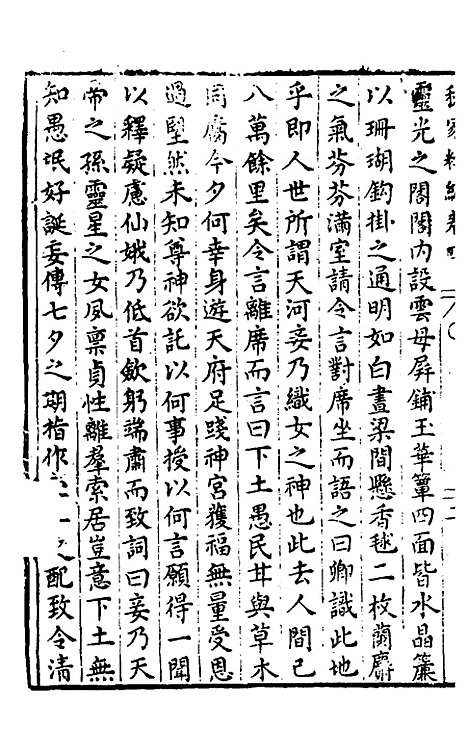 靈光之閣閣內設雲母屏鋪玉華簟四面皆水晶簾
以珊瑚鈎掛之通明如白晝梁間懸香毬二枚蘭麝
之氣芬芬滿室請令言對席坐而語之曰卿識此地
乎即人世所謂天河妾乃織女之神也此去人間已
八萬餘里矣令言離席而言曰下土愚民甘與草木
同腐今夕何幸身遊天府足踐神宮獲福無量受恩
過望然未知尊神欲託以何事授以何言願得一聞
以釋疑慮仙娥乃低首歛躬端肅而致詞曰妾乃天
帝之孫靈星之女夙稟貞性離羣索居豈意下土無
知愚氓好誕妄傳七夕之期指作之配致令清